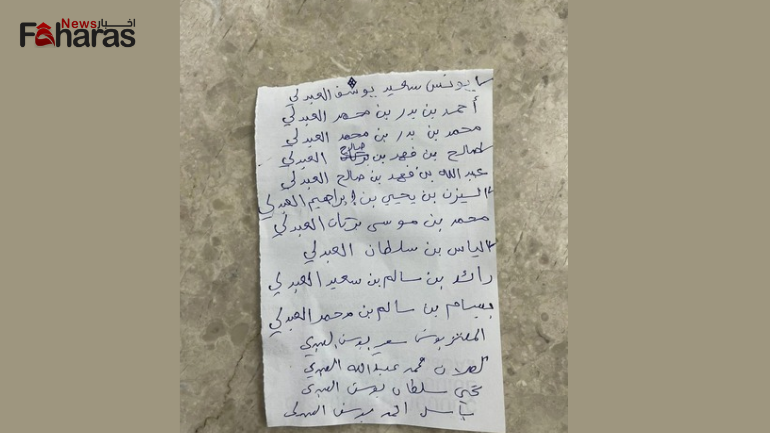 اخبار News
Faharas
يونس سعيد يوسف العبدلي
أحمد بن بدر بن محمد العبدلي
محمد بن بدر بن محمد العبدلي
صالح بن فهد بن صالح العبدلي
عبدالله بن فهد بن صالح العبدلي
اليزن بن يحيى بن إبراهيم العبدلي
محمد بن موسى بركات العبدلي
الياس بن سلطان العبدلي
رائد بن سالم بن سعيد العبدلي
بسام بن سالم بن محمد العبدلي
المعتز يونس سعيد يوسف العبدلي
محمد عبدالله العبدلي
يحي سلطان يوسف العبدلي
باسل احمد يوسف العبدلي